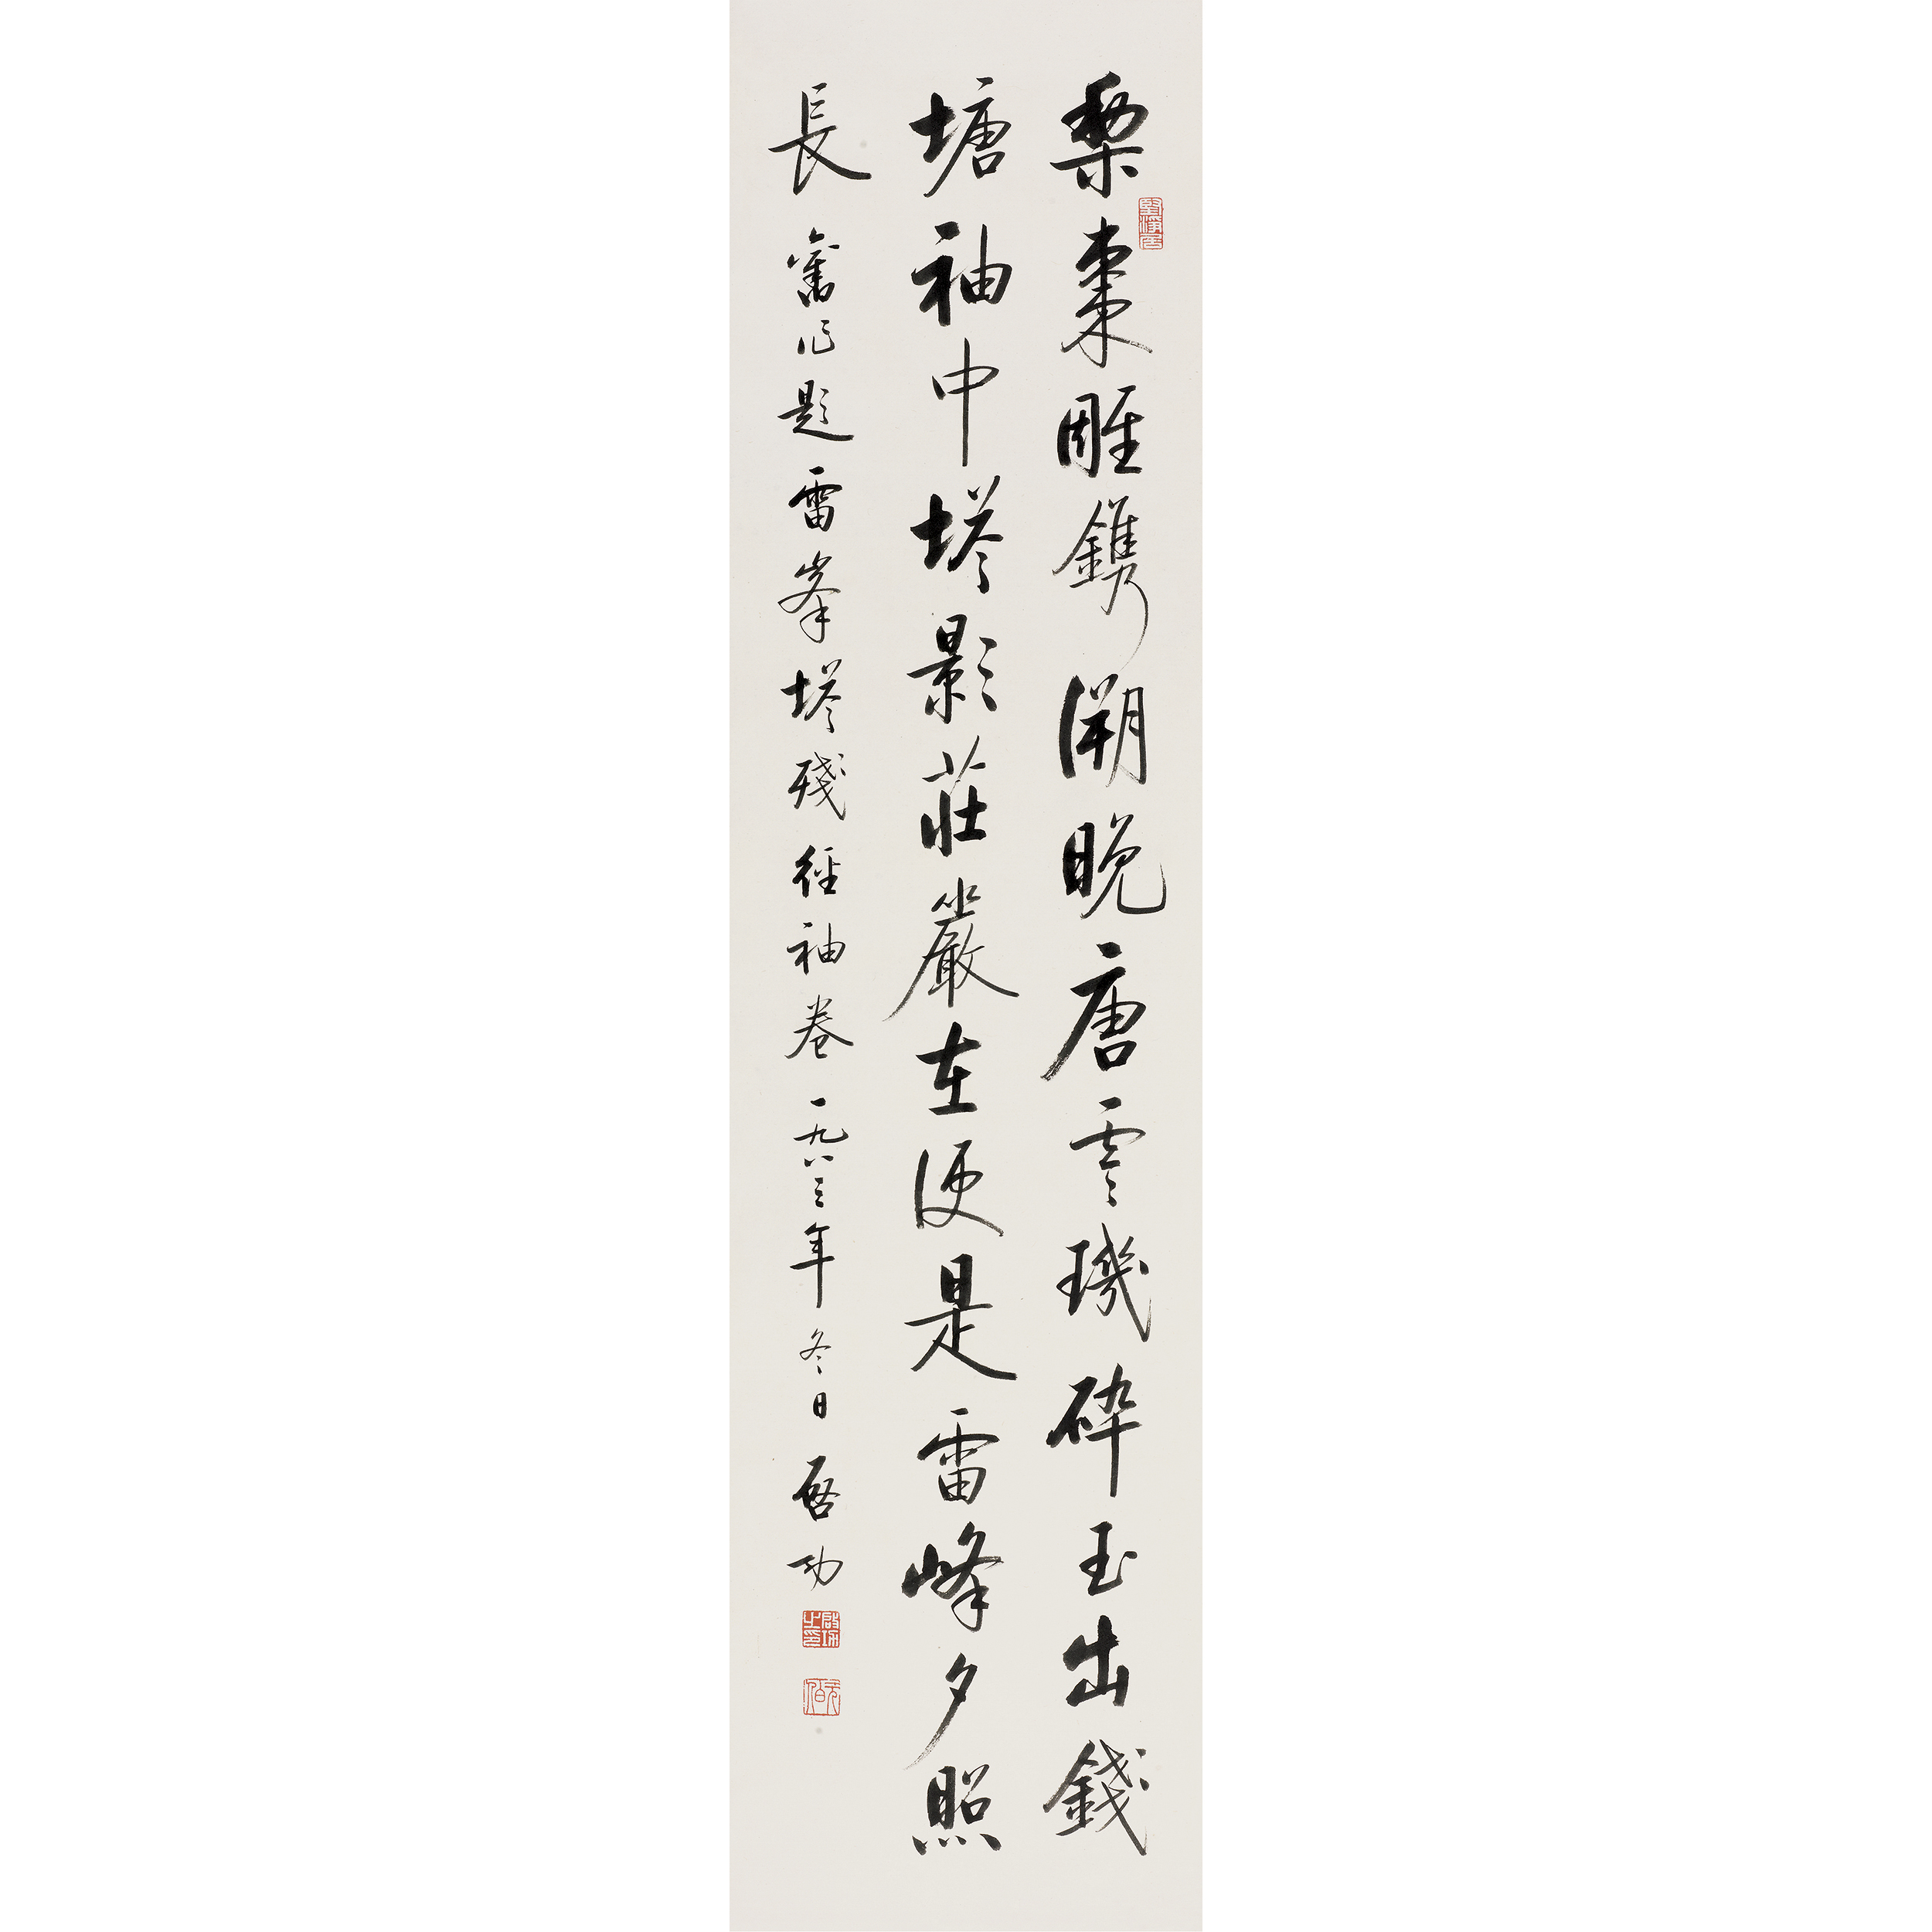 梨棗雕鐫溯晚唐零璣碎玉出錢
塘袖中塔影莊嚴在便是雷峰夕照
長 舊作題雷峯塔殘經袖卷 一九八三年冬日 啓功
啟功之印
元白